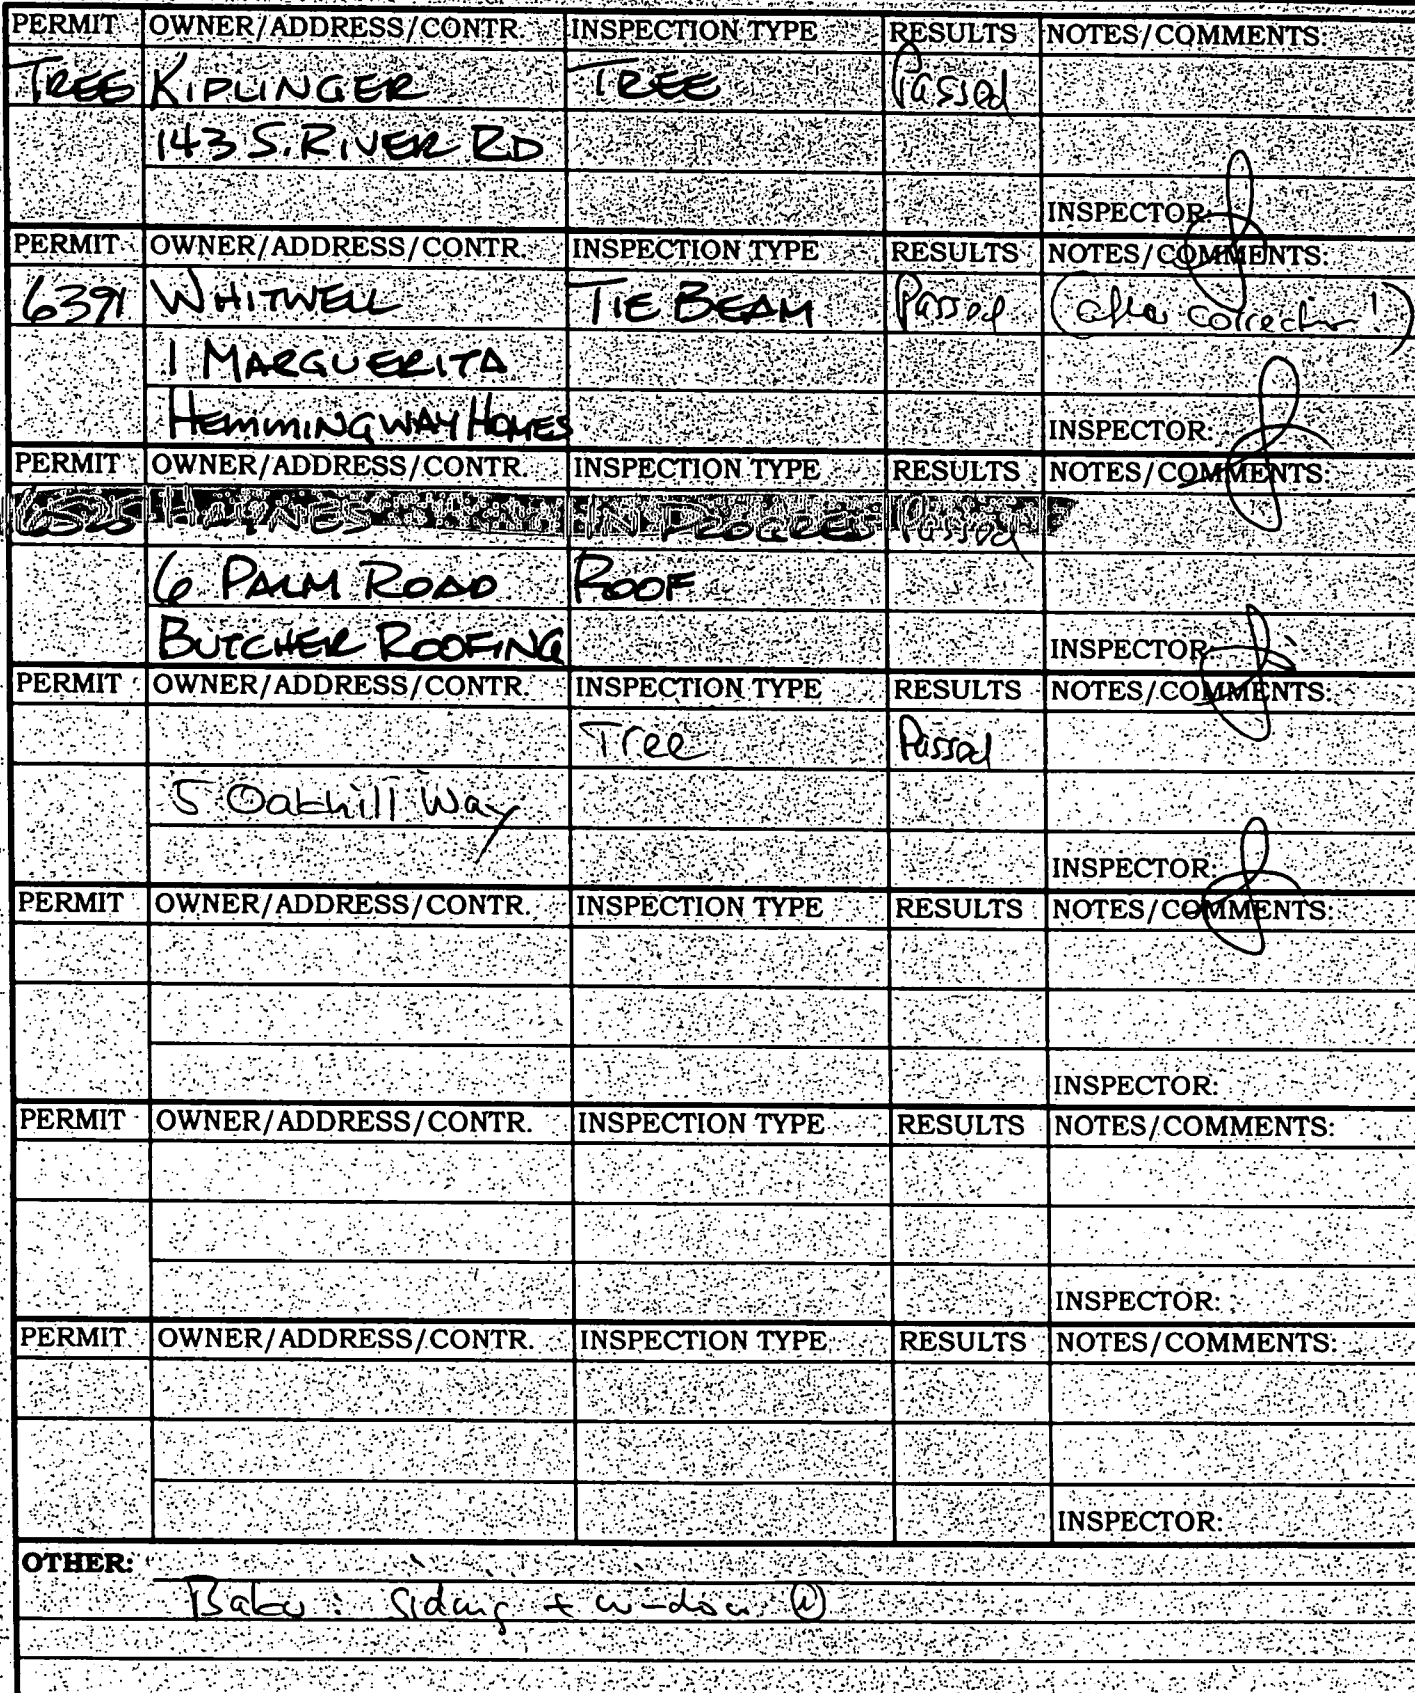 PERMIT OWNER/ADDRESS/CONTR. INSPECTION TYPE RESULTS NOTES/COMMENTS
TREE KIPLINGER TREE Passed
143 S. RIVER RD
INSPECTOR:
PERMIT OWNER/ADDRESS/CONTR. INSPECTION TYPE RESULTS NOTES/COMMENTS:
6391 WHITWELL TIE BEAM Passed (after correction!)
1 MARGUERITA
HEMMINGWAY HOMES
INSPECTOR:
PERMIT OWNER/ADDRESS/CONTR. INSPECTION TYPE RESULTS NOTES/COMMENTS:
6525 HAINES IN PROGRESS Passed
6 PALM ROAD ROOF
BUTCHER ROOFING
INSPECTOR:
PERMIT OWNER/ADDRESS/CONTR. INSPECTION TYPE RESULTS NOTES/COMMENTS:
Tree Passed
5 Oakhill Way
INSPECTOR:
PERMIT OWNER/ADDRESS/CONTR. INSPECTION TYPE RESULTS NOTES/COMMENTS:
INSPECTOR:
PERMIT OWNER/ADDRESS/CONTR. INSPECTION TYPE RESULTS NOTES/COMMENTS:
INSPECTOR:
PERMIT OWNER/ADDRESS/CONTR. INSPECTION TYPE RESULTS NOTES/COMMENTS:
INSPECTOR:
OTHER:
siding + window